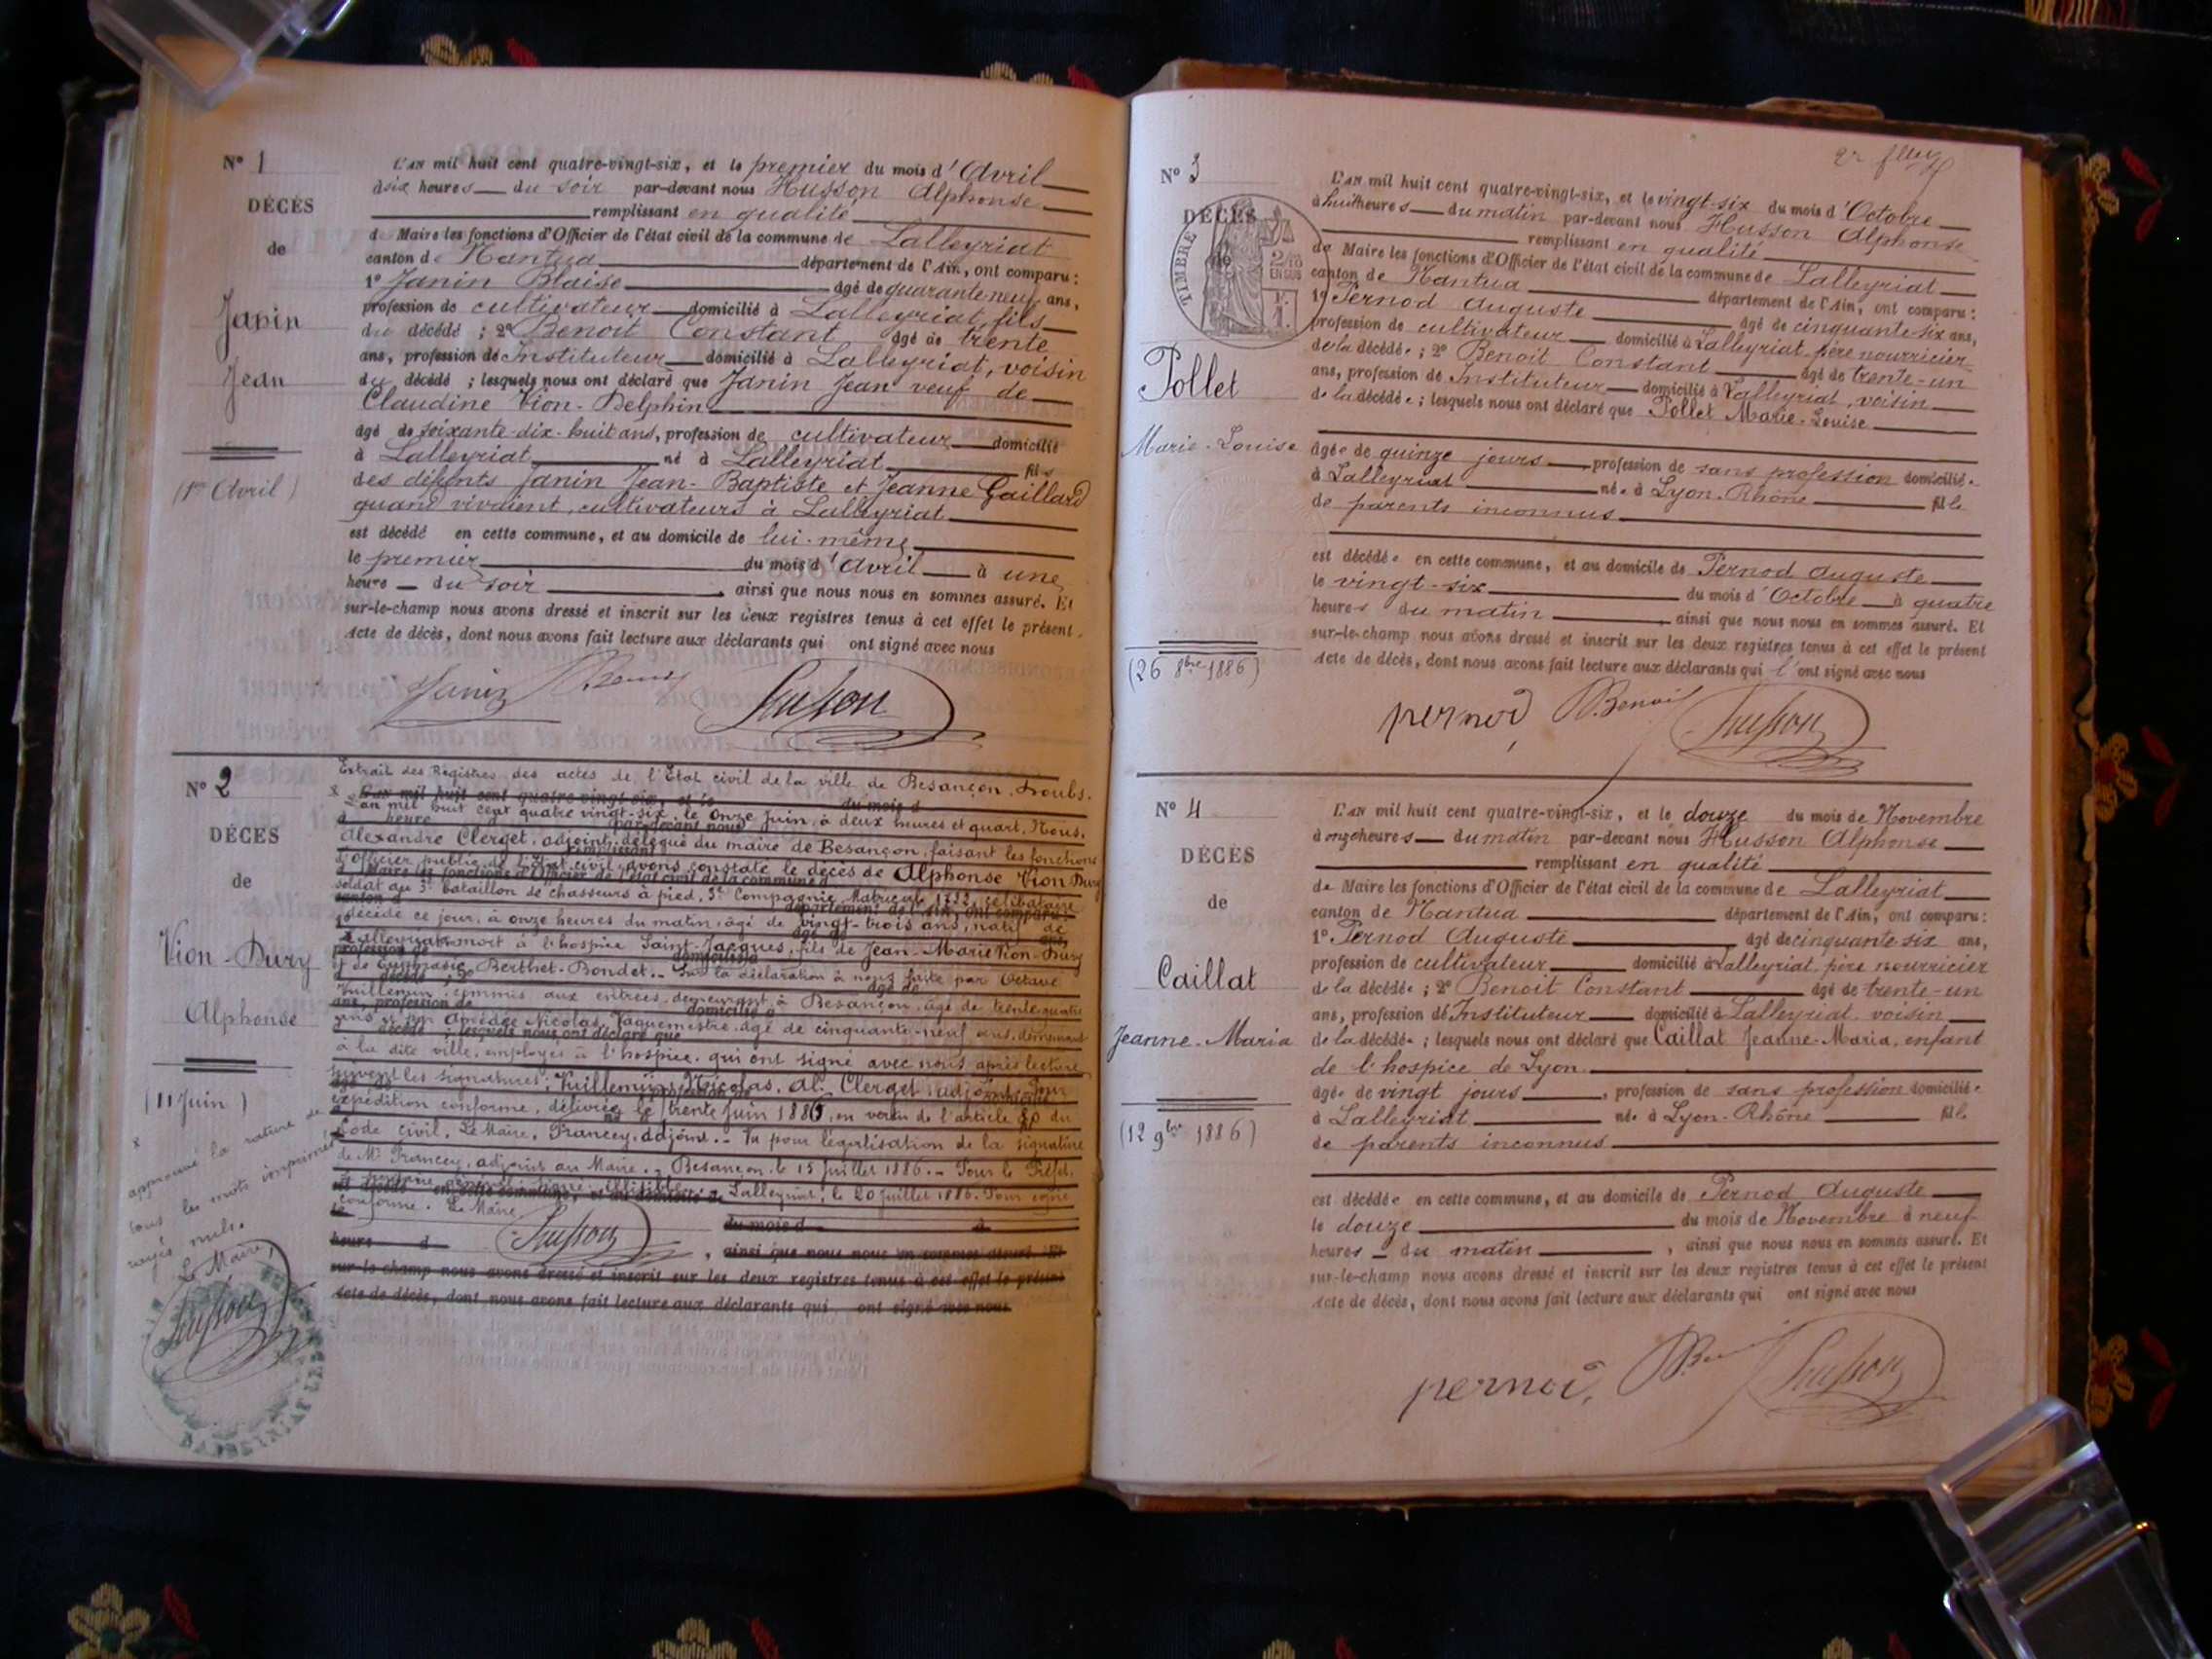 N° 1
DÉCÈS
de
Janin
Jean
(1er Avril)
L'AN mil huit cent quatre-vingt-six, et le premier du mois d'Avril
à six heures du soir par-devant nous Husson Alphonse
remplissant en qualité
d Maire les fonctions d'Officier de l'état civil de la commune de Lalleyriat
canton de Nantua département de l'Ain, ont comparu :
1° Janin Blaise âgé de quarante-neuf ans,
profession de cultivateur domicilié à Lalleyriat, fils
du décédé ; 2° Benoit Constant âgé de trente
ans, profession de Instituteur domicilié à Lalleyriat, voisin
du décédé ; lesquels nous ont déclaré que Janin Jean veuf de
Claudine Vion-Delphin
âgé de soixante-dix-huit ans, profession de cultivateur domicilié
à Lalleyriat né à Lalleyriat fils
des défunts Janin Jean-Baptiste et Jeanne Gaillard
quand vivaient, cultivateurs à Lalleyriat
est décédé en cette commune, et au domicile de lui-même
le premier du mois d'Avril à une
heure du soir , ainsi que nous nous en sommes assuré. Et
sur-le-champ nous avons dressé et inscrit sur les deux registres tenus à cet effet le présent
Acte de décès, dont nous avons fait lecture aux déclarants qui ont signé avec nous
Janin Benoit Husson
N° 2
DÉCÈS
de
Vion-Dury
Alphonse
(11 Juin)
x
approuvé la rature de
tous les mots imprimés
rayés nuls.
Le Maire,
Husson
Extrait des Registres des actes de l'Etat civil de la ville de Besançon, Doubs.
x L'an mil huit cent quatre vingt-six, le onze Juin, à deux heures et quart, Nous,
Alexandre Clerget, adjoint délégué du maire de Besançon, faisant les fonctions
d'officier public de l'Etat civil, avons constaté le décès de Alphonse Vion-Dury
soldat au 3e bataillon de chasseurs à pied, 3e Compagnie, Matricule 1722, célibataire
décédé ce jour, à onze heures du matin, âgé de vingt-trois ans, natif de
Lalleyriat, mort à l'hospice Saint-Jacques, fils de Jean-Marie Vion-Dury
et de Euphrasie Berthet-Bondet. Sur la déclaration à nous faite par Octave
Vuillemin, commis aux entrées, demeurant à Besançon, âgé de trente-quatre
ans et par Amédée Nicolas, Vaguemestre, âgé de cinquante-neuf ans, demeurant
à la dite ville, employés à l'hospice, qui ont signé avec nous après lecture
suivent les signatures : Vuillemin, Nicolas, Al. Clerget adjoint. Pour
expédition conforme, délivrée le trente Juin 1886, en vertu de l'article 80 du
Code civil. Le Maire, Francey, adjoint. - Vu pour légalisation de la signature
de Mr Francey, adjoint au Maire. - Besançon, le 15 Juillet 1886. - Pour le Préfet,
signé illisible. Lalleyriat, le 20 juillet 1886. Pour copie
conforme. Le Maire
Husson
du mois d à
heure d , ainsi que nous nous en sommes assuré. Et
sur-le-champ nous avons dressé et inscrit sur les deux registres tenus à cet effet le présent
Acte de décès, dont nous avons fait lecture aux déclarants qui ont signé avec nous
N° 3
DÉCÈS
de
TIMBRE
Pollet
Marie-Louise
(26 8bre 1886)
L'AN mil huit cent quatre-vingt-six, et le vingt-six du mois d'Octobre
à huit heures du matin par-devant nous Husson Alphonse
remplissant en qualité
de Maire les fonctions d'Officier de l'état civil de la commune de Lalleyriat
canton de Nantua département de l'Ain, ont comparu :
1° Pernod Auguste âgé de cinquante-six ans,
profession de cultivateur domicilié à Lalleyriat, père nourricier
de la décédée ; 2° Benoit Constant âgé de trente-un
ans, profession de Instituteur domicilié à Lalleyriat, voisin
de la décédée ; lesquels nous ont déclaré que Pollet Marie-Louise
âgée de quinze jours profession de sans profession domiciliée
à Lalleyriat née à Lyon-Rhône fille
de parents inconnus
est décédée en cette commune, et au domicile de Pernod Auguste
le vingt-six du mois d'Octobre à quatre
heures du matin , ainsi que nous nous en sommes assuré. Et
sur-le-champ nous avons dressé et inscrit sur les deux registres tenus à cet effet le présent
Acte de décès, dont nous avons fait lecture aux déclarants qui l'ont signé avec nous
pernod Benoit Husson
N° 4
DÉCÈS
de
Caillat
Jeanne-Maria
(12 9bre 1886)
L'AN mil huit cent quatre-vingt-six, et le douze du mois de Novembre
à onze heures du matin par-devant nous Husson Alphonse
remplissant en qualité
de Maire les fonctions d'Officier de l'état civil de la commune de Lalleyriat
canton de Nantua département de l'Ain, ont comparu :
1° Pernod Auguste âgé de cinquante six ans,
profession de cultivateur domicilié à Lalleyriat, père nourricier
de la décédée ; 2° Benoit Constant âgé de trente-un
ans, profession de Instituteur domicilié à Lalleyriat, voisin
de la décédée ; lesquels nous ont déclaré que Caillat Jeanne-Maria, enfant
de l'hospice de Lyon
âgée de vingt jours , profession de sans profession domiciliée
à Lalleyriat née à Lyon-Rhône fille
de parents inconnus
est décédée en cette commune, et au domicile de Pernod Auguste
le douze du mois de Novembre à neuf
heures du matin , ainsi que nous nous en sommes assuré. Et
sur-le-champ nous avons dressé et inscrit sur les deux registres tenus à cet effet le présent
Acte de décès, dont nous avons fait lecture aux déclarants qui ont signé avec nous
pernod Husson